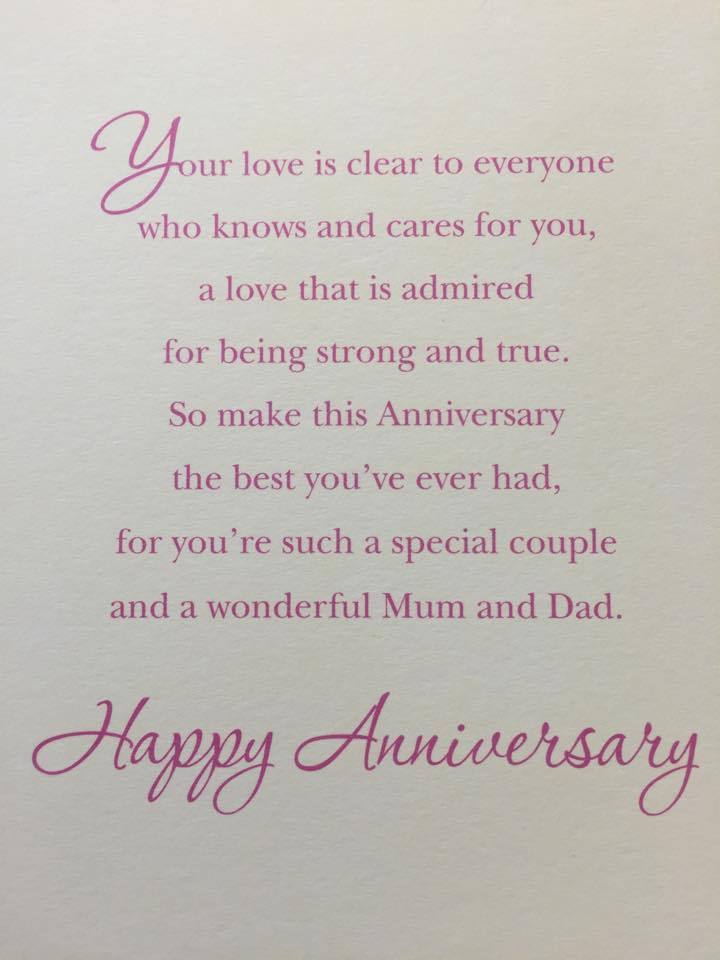 Your love is clear to everyone
who knows and cares for you,
a love that is admired
for being strong and true.
So make this Anniversary
the best you’ve ever had,
for you’re such a special couple
and a wonderful Mum and Dad.
Happy Anniversary